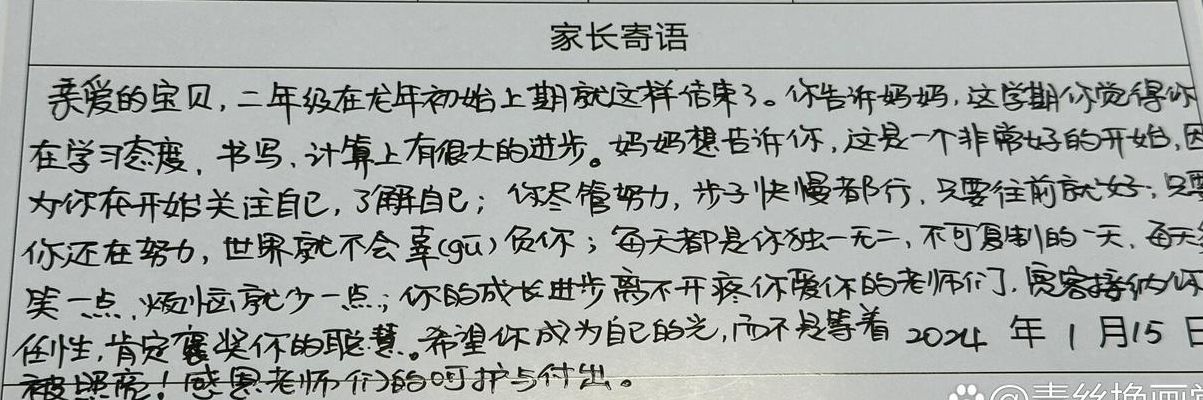 家长寄语
亲爱的宝贝，二年级在龙年初始上期就这样结束了。你告诉妈妈，这学期你觉得你
在学习态度、书写、计算上有很大的进步。妈妈想告诉你，这是一个非常好的开始，因
为你在开始关注自己，了解自己；你尽管努力，步子快慢都行，只要往前就好；只要
你还在努力，世界就不会辜(gū)负你；每天都是你独一无二，不可复制的一天，每天
笑一点，烦恼就少一点；你的成长进步离不开疼你爱你的老师们，宽容接纳你
任性，肯定褒奖你的聪慧。希望你成为自己的光，而不是等着 2024 年 1 月 15 日
被照亮！感恩老师们的呵护与付出。
@青丝挽画